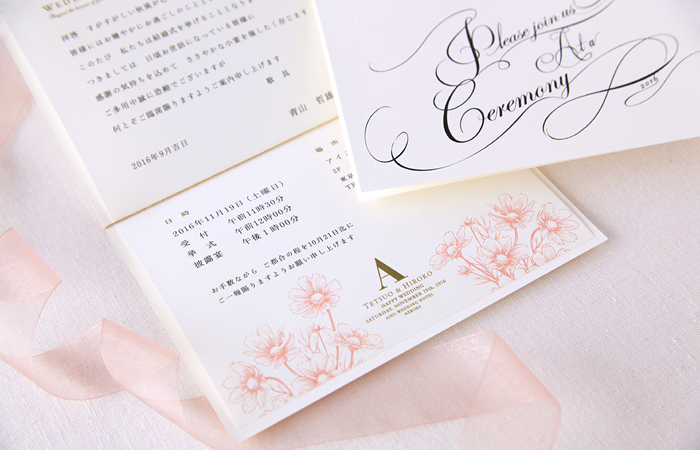 WEDD
拝啓 すがすがしい秋風が
皆様にはお健やかにお過ごしのことと
このたび 私たちは結婚式を挙げることとなり
つきましては 日頃お世話になっている皆様に
感謝の気持ちを込めて ささやかな小宴を催したく存じます
ご多用中誠に恐縮でございますが
何とぞご臨席賜りますようご案内申し上げます
敬具
2016年9月吉日
青山 哲雄
Please join us
At a
Ceremony
2016
日時
2016年11月19日(土曜日)
受付 午前11時30分
挙式 午前12時00分
披露宴 午後1時00分
お手数ながら ご都合の程を10月21日迄に
ご一報賜りますようお願い申し上げます
場所
アイ
2F
東京
TE
A
TETSUO & HIROKO
HAPPY WEDDING
SATURDAY, NOVEMBER 19TH, 2016
AISU WEDDING HOTEL
NERIMA